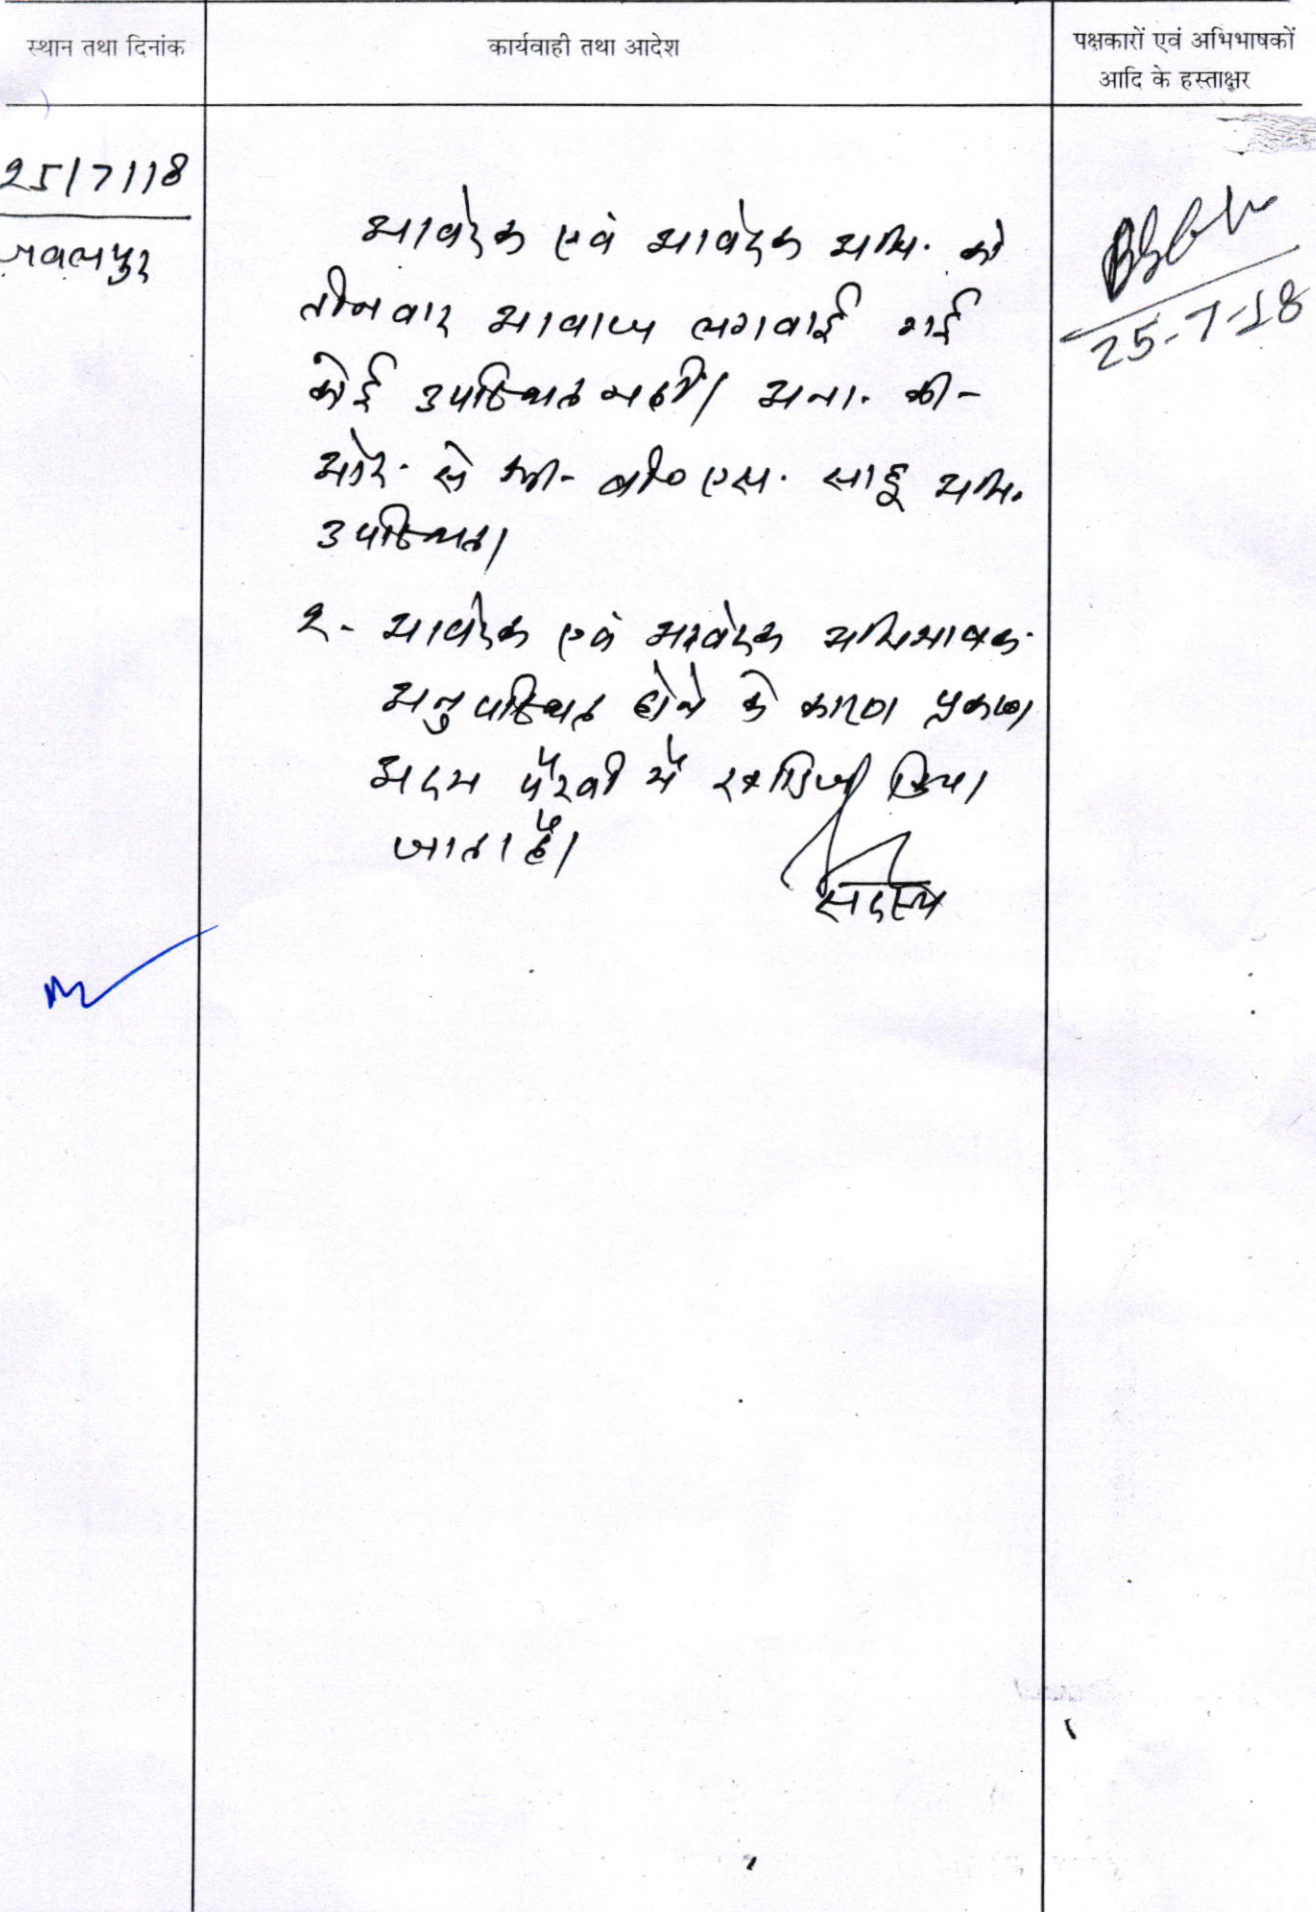 स्थान तथा दिनांक
कार्यवाही तथा आदेश
पक्षकारों एवं अभिभाषकों
आदि के हस्ताक्षर
25/7/18
जबलपुर
आवेदक एवं आवेदक अभि. को
तीन बार आवाज लगवाई गई
कोई उपस्थित नहीं। अना. की-
ओर से श्री- बी० एस. साहू अभि.
उपस्थित।
2- आवेदक एवं आवेदक अभिभाषक
अनुपस्थित होने के कारण प्रकरण
अदम पैरवी में खारिज किया
जाता है।
सदस्य
25-7-18